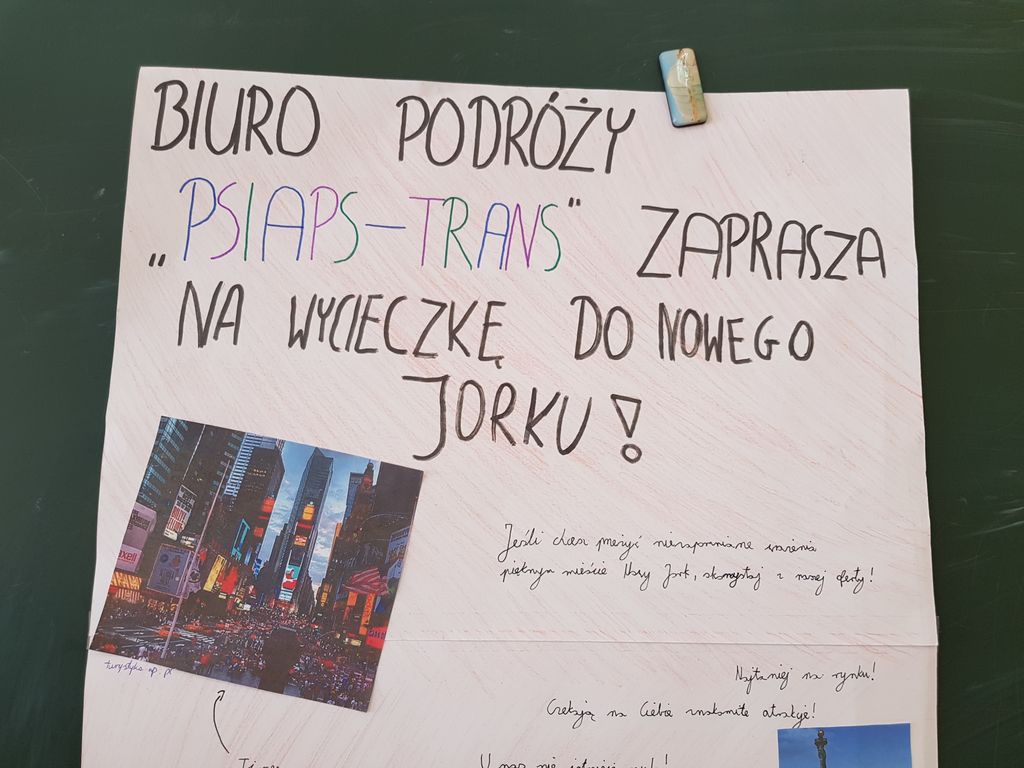 BIURO PODRÓŻY
„PSIAPS-TRANS" ZAPRASZA
NA WYCIECZKĘ DO NOWEGO
JORKU!
Jeśli chcesz przeżyć niezapomniane wrażenia
pięknym mieście Nowy Jork, skorzystaj z naszej oferty!
turystyka wp. pl
Najtaniej na rynku!
Czekają na Ciebie znakomite atrakcje!
U nas nie